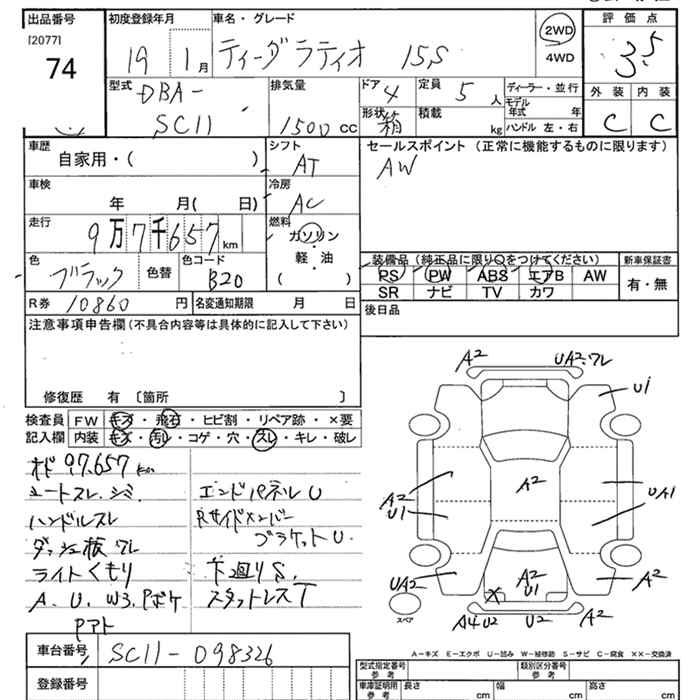 出品番号
[2077]
74
初度登録年月
19 1月
車名・グレード
ティーダラティオ 15S
2WD
4WD
評価点
3.5
外装 内装
C C
型式
DBA-
SC11
排気量
1500 cc
ドア 4
形状 箱
定員 5 人
積載 kg
ディーラー・並行
モデル年式 年
ハンドル 左・右
車歴
自家用・( )
シフト
AT
車検
年 月( 日)
冷房
AC
走行
9万7千657 km
燃料
ガソリン
軽・油
( )
色
ブラック
色替
色コード
B20
R券 10860 円
名変通知期限 月 日
セールスポイント (正常に機能するものに限ります)
AW
装備品 (純正品に限り○をつけてください)
PS PW ABS エアB AW
SR ナビ TV カワ
新車保証書
有・無
後日品
注意事項申告欄 (不具合内容等は具体的に記入して下さい)
修復歴 有 〔箇所 〕
検査員 FW キズ・飛石・ヒビ割・リペア跡・×要
記入欄 内装 キズ・汚レ・コゲ・穴・スレ・キレ・破レ
オド 97.657 km
シートスレ、シミ.
ハンドルスレ
ダッシュ板 ワレ
ライトくもり
A. U. W3. Pボケ
Pアト
エンドパネルU
Rサイドメンバー
ブラケットU.
下廻りS.
スタットレスT
A2 UA2:ワレ
U1
A2
U1
A2
UA1
UA2
A2
U1
A2
A4U2 U2 A2
スペア
A-キズ E-エクボ U-凹み W-補修跡 S-サビ C-腐食 XX-交換済
車台番号 SC11-098326
登録番号
型式指定番号
参考
類別区分番号
参考
車庫証明用
参考
長さ cm
幅 cm
高さ cm